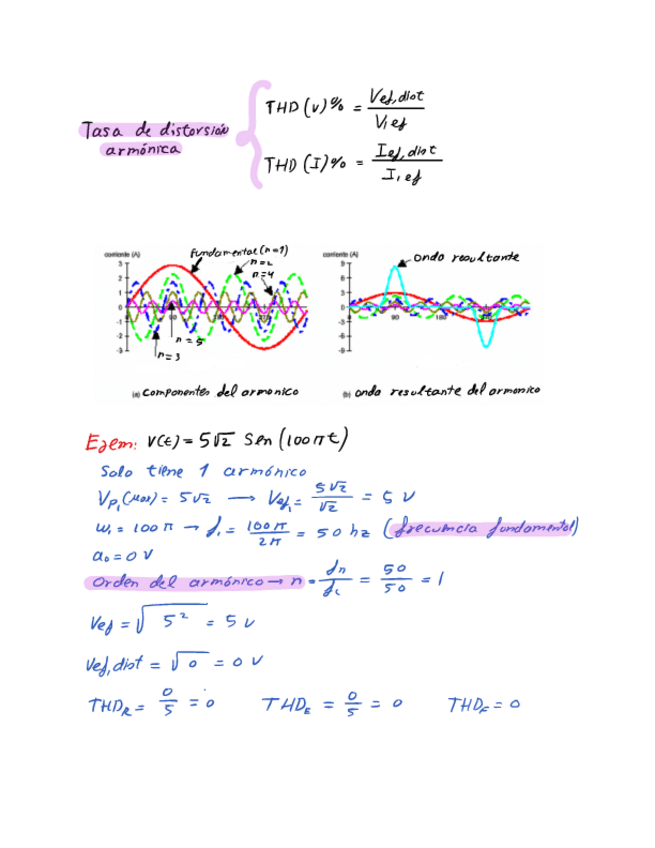 Tasa de distorsión armónica
THD (V)% = Vef,dist / V1 ef
THD (I)% = Ief, dist / I1 ef
corriente (A)
fundamental (n=1)
n=2
n=4
n=5
n=3
3
2
1
0
-1
-2
-3
90
(a) Componentes del armonico
corriente (A)
onda resultante
9
6
3
0
-3
-6
-9
90
180
(b) onda resultante del armonico
Ejem: V(t) = 5√2 Sen (100πt)
Solo tiene 1 armónico
Vp1 (max) = 5√2 → Vef1 = 5√2 / √2 = 5 V
w1 = 100π → f1 = 100π / 2π = 50 hz (frecuencia fundamental)
a0 = 0 V
Orden del armónico → n = fn / f1 = 50 / 50 = 1
Vef = √5² = 5 V
Vef,dist = √0 = 0 V
THDR = 0/5 = 0 THDE = 0/5 = 0 THDF = 0